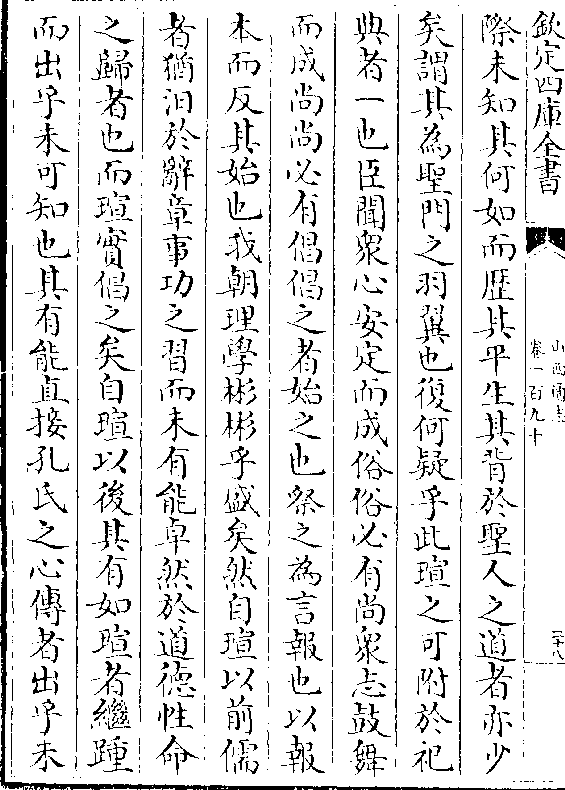 欽定四庫全書
山西通志
卷一百九十
二十八
際未知其何如而歷其平生其背於聖人之道者亦少
矣謂其為聖門之羽翼也復何疑乎此瑄之可附於祀
典者一也臣聞衆心安定而成俗俗必有尚衆志鼓舞
而成尚尚必有倡倡之者始之也祭之為言報也以報
本而反其始也我朝理學彬彬乎盛矣然自瑄以前儒
者猶汩於辭章事功之習而未有能卓然於道德性命
之歸者也而瑄實倡之矣自瑄以後其有如瑄者繼踵
而出乎未可知也其有能直接孔氏之心傳者出乎未